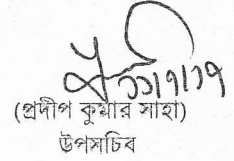 (প্রদীপ কুমার সাহা)
উপসচিব